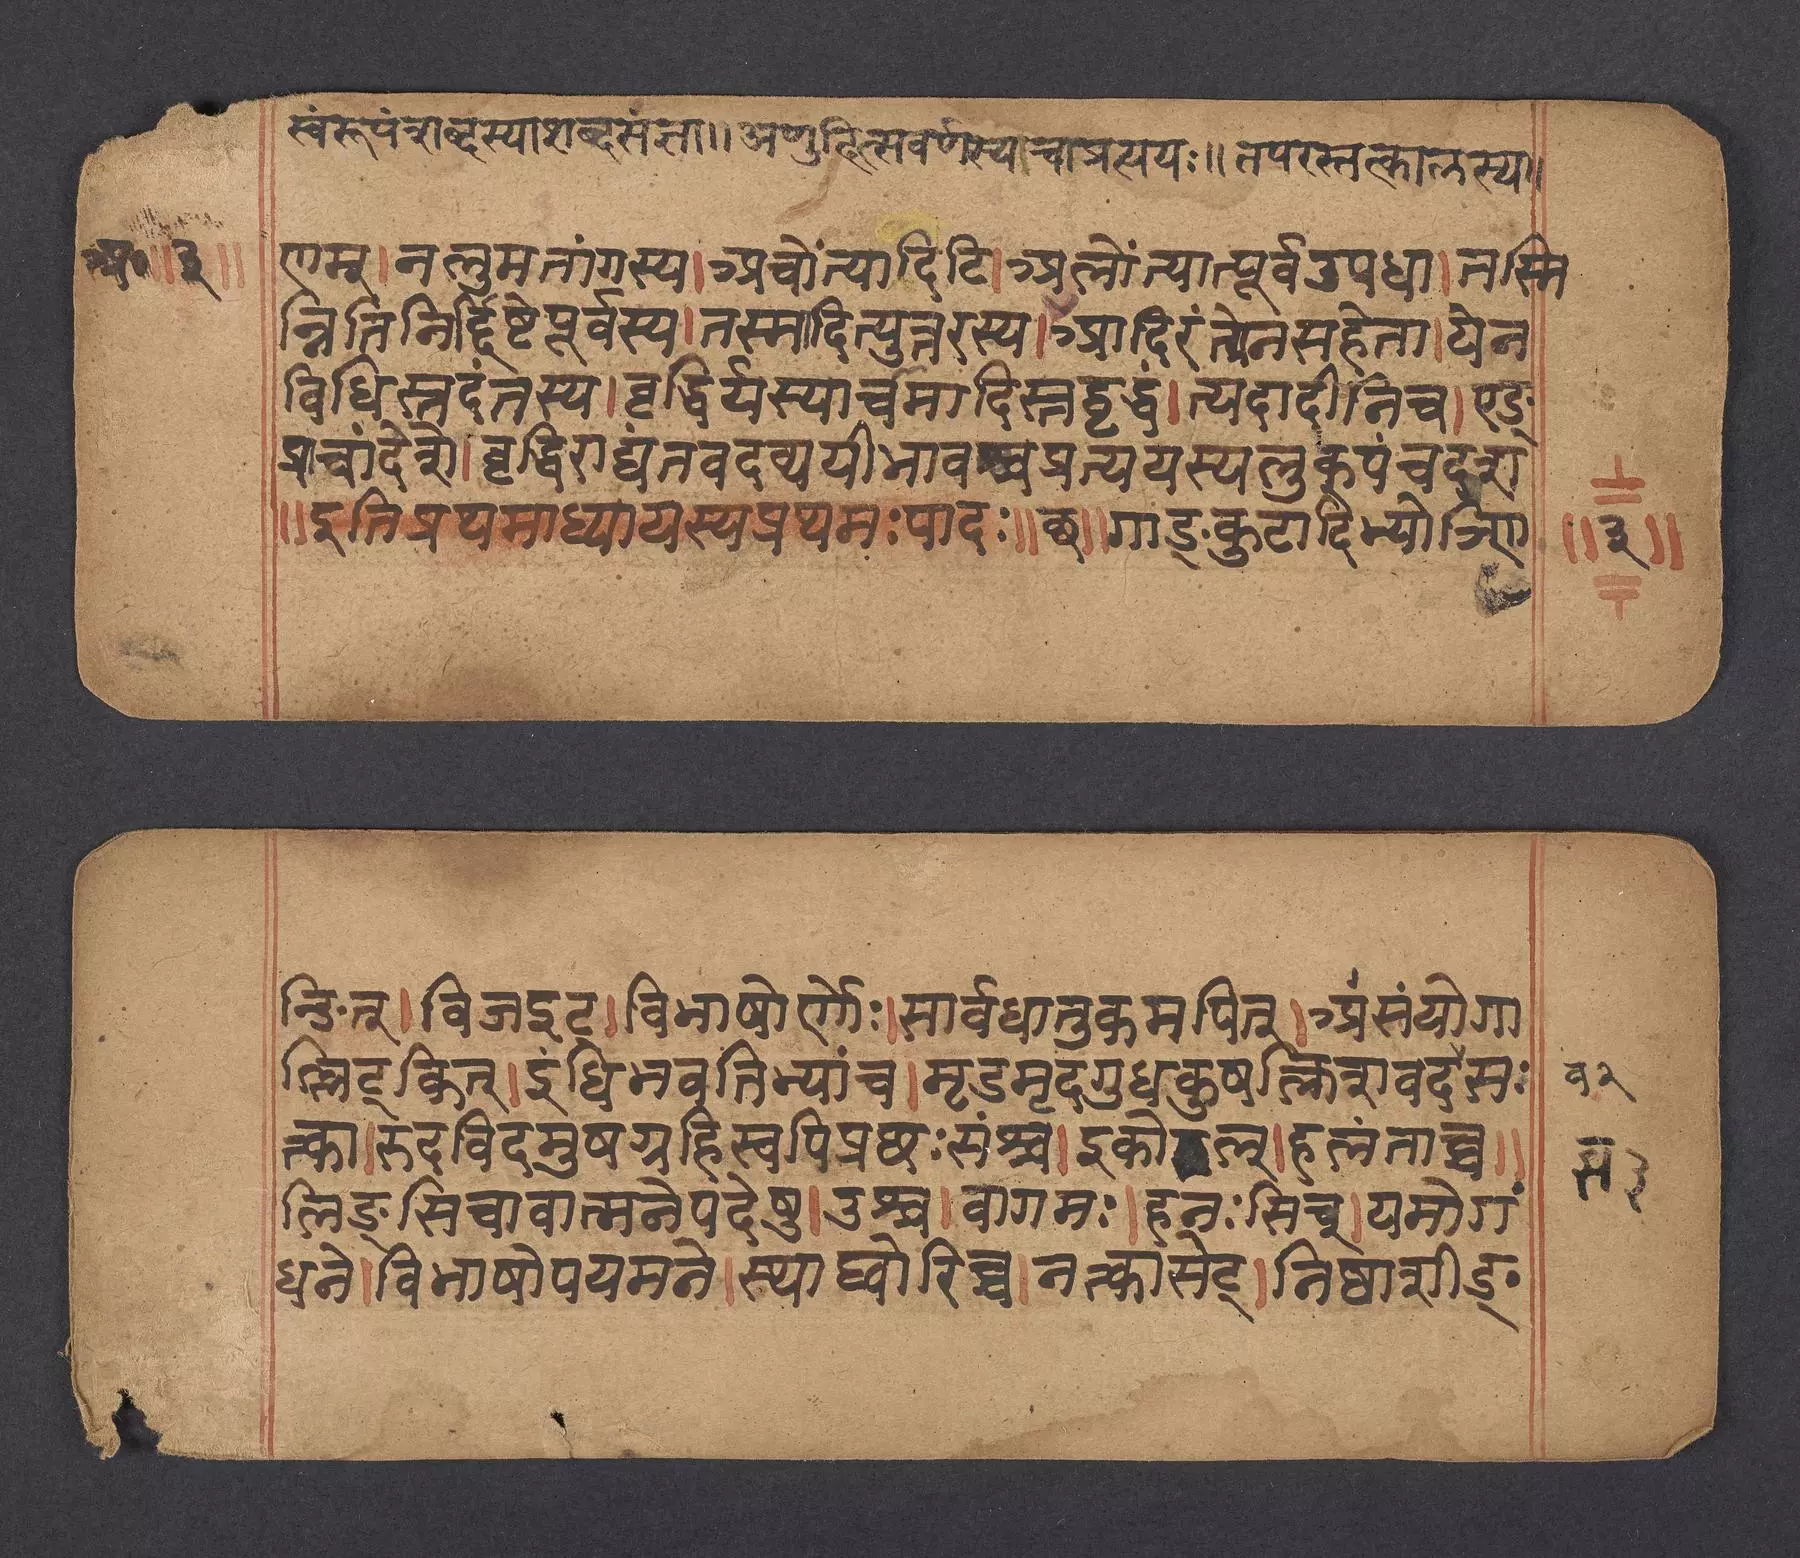 स्वंरूपंशब्दस्याशब्दसंज्ञा॥ अणुदित्सवर्णस्यचाप्रत्ययः॥ तपरस्तत्कालस्य॥
अ॰॥३॥
णम्।नलुमतांगस्य।अचोंत्यादिटि।अलोंत्यात्पूर्वउपधा।तस्मि
न्नितिनिर्द्दिष्टेपूर्वस्य।तस्मादित्युत्तरस्य।आदिरंत्येनसहेता।येन
विधिस्तदंतस्य।वृद्धिर्यस्याचामादिस्तद्वृद्धं।त्यदादीनिच।एङ्
प्राचांदेशे।वृद्धिराद्यंतवदव्ययीभावश्चप्रत्ययस्यलुक्पंचदश
॥इतिप्रथमाध्यायस्यप्रथमःपादः॥छ॥गाङ्कुटादिभ्योञ्णि
॥३॥
न्ङित्।विजइट्।विभाषोर्णोः।सार्वधातुकमपित्।असंयोगा
ल्लिट्कित्।इंधिभवतिभ्यांच।मृडमृदगुधकुषक्लिशवदसः
क्त्वा।रुदविदमुषग्रहिस्वपिप्रछःसंश्च।इकोल्।हलंताच्च॥
लिङ्सिचावात्मनेपदेषु।उश्च।वागमः।हनःसिच्।यमोगं
धने।विभाषोपयमने।स्थाघ्वोरिच्च।नक्त्वासेट्।निष्ठाशीङ्
व२